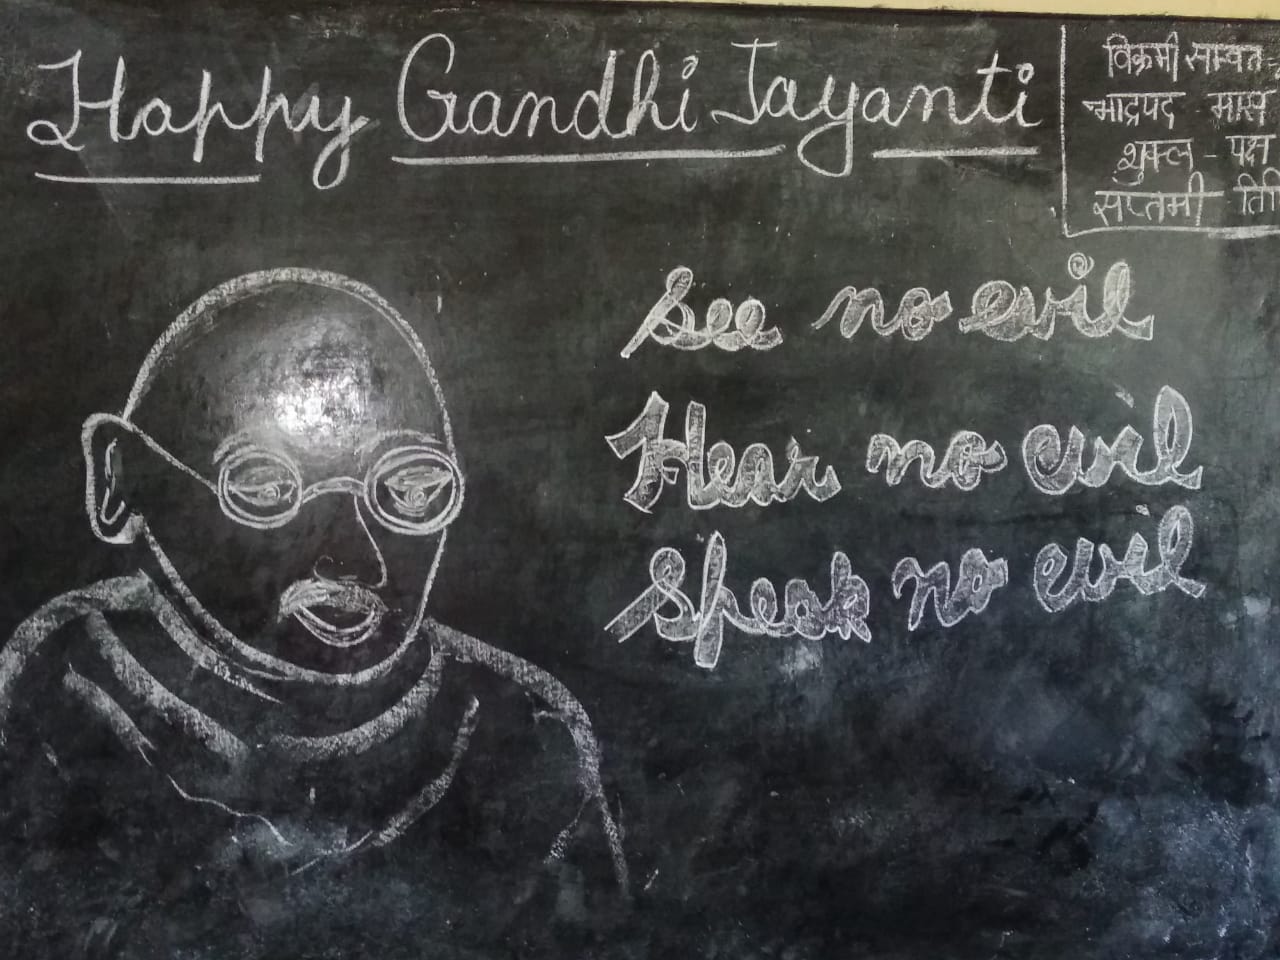 Happy Gandhi Jayanti
विक्रमी सम्वत
भाद्रपद मास
शुक्ल - पक्ष
सप्तमी
See no evil
Hear no evil
Speak no evil